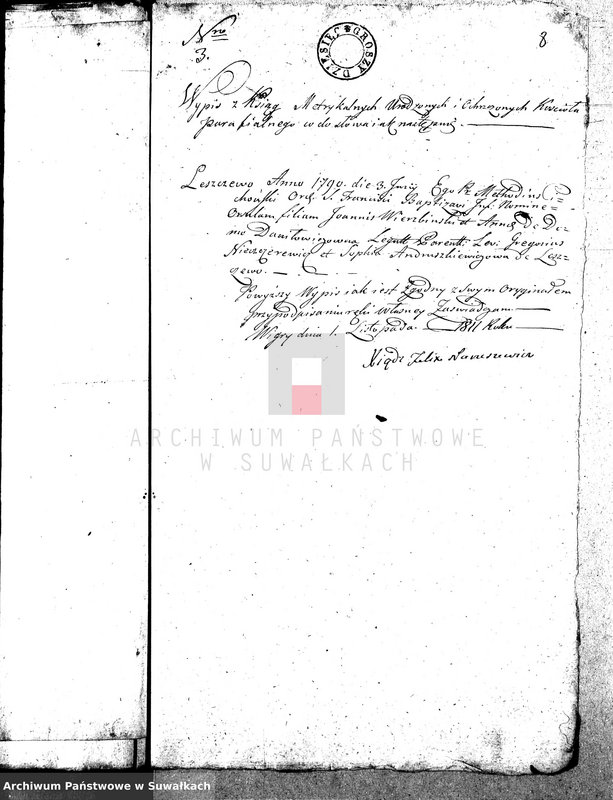 Nro
3.
DZIESIĘĆ GROSZY
8
Wypis z Ksiąg Metrykalnych Urodzonych i Ochrzczonych Kościoła
parafialnego co do słowa iak następuie
Leszczewo Anno 1790. die 3. Junij Ego Pr. Methodius
Ord. S. Francisci Baptizavi Inf. Nomine
filiam Joannis Wierzbinski et Anna de Do=
mo Legitt. Parent. Lev. Gregorius
et Sophia Andruszkiewiczowa de Lesz=
czewo.
Powyższy Wypis iak iest zgodny z swym Oryginałem
przy podpisaniu ręki własney Zaświadczam.
Wigry dnia 1. Listopada 1811 Roku
Xiądz Felix
ARCHIWUM PAŃSTWOWE
W SUWAŁKACH
Archiwum Państwowe w Suwałkach